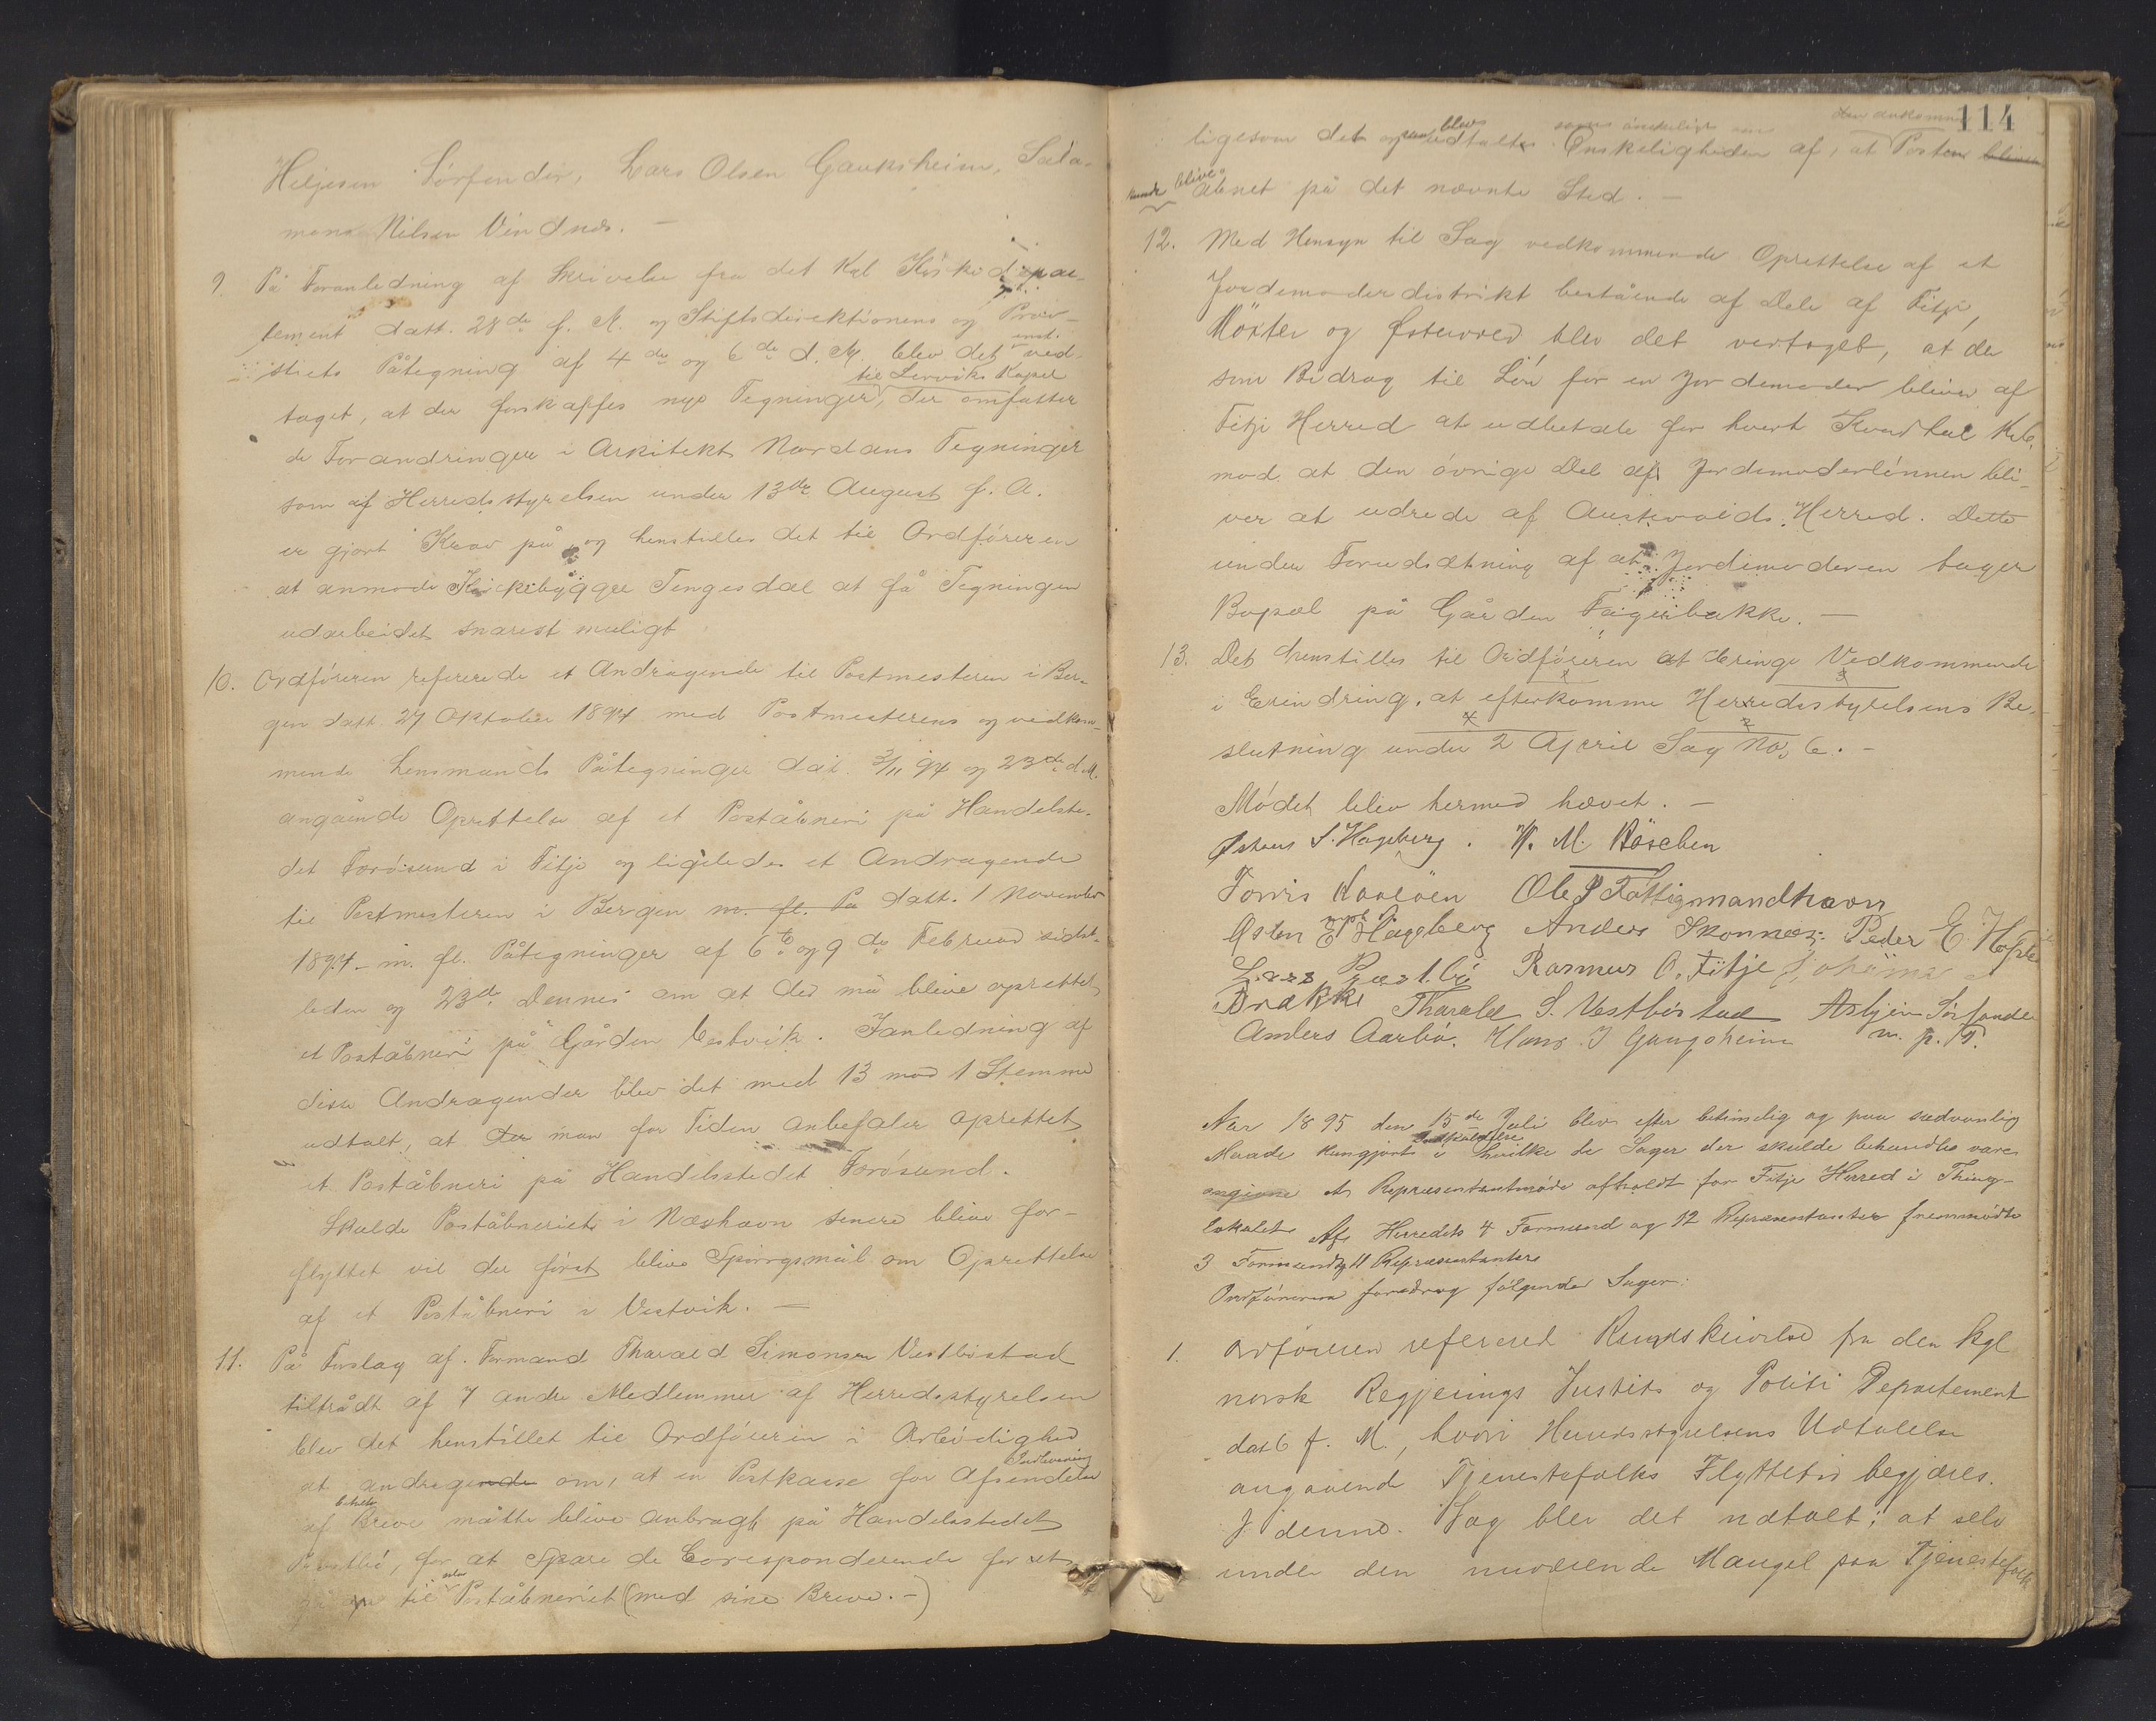 Heljesen Sørfonder, Lars Olsen Gauksheim, Salo-
mon Nilsen Vindnes. —
9. På Foranledning af Skrivelse fra det Kgl Kirkedepar-
tement datt. 28de f. M. og Stiftsdirektionens og Prov-
stiets Påtegning af 4de og 6de d. M. blev det enst. ved-
taget, at der forskaffes nye Tegninger til Lerviks Kapel, der omfatter
de Forandringer i Arkitekt Nordans Tegninger
som af Herredsstyrelsen under 13de August f. A.
er gjort Krav på og henstilles det til Ordføreren
at anmode Kirkebygger Tengesdal at få Tegningen
udarbeidet snarest muligt
10. Ordføreren refererede et Andragende til Postmesteren i Ber-
gen datt 27 Oktober 1894 med Postmesterens og vedkom-
mende Lensmands Påtegninger dat. 3/11 94 og 23de d. M.
angående Oprettelse af et Poståbneri på Handelsste-
det Forøsund i Fitje og ligeledes et Andragende
til Postmesteren i Bergen m. fl. På datt. 1 November
1894 m. fl. Påtegninger af 6te og 9de Februar sidst-
leden og 23de Dennes om at der må blive oprettet
et Poståbneri på Gården Vestvik. I anledning af
disse Andragender blev det med 13 mod 1 Stemme
udtalt, at der man for Tiden anbefaler oprettet
et Poståbneri på Handelsstedet Forøsund.
Skulde Poståbneriet i Næshavn senere blive for-
flyttet vil der først blive Spørgsmål om Oprettelse
af et Poståbneri i Vestvik. —
11. På Forslag af Formand Tharald Simonsen Vestbøstad
tiltrådt af 7 andre Medlemmer af Herredsstyrelsen
blev det henstillet til Ordføreren i Ærbødighed
at andragende om, at en Postkasse for Afsendelse Indlevering
af Breve måtte blive anbragt på Handelsstedet
for at spare de Corresponderende for at
til Poståbneriet (med sine Breve. —)
114
ligesom det og blev udtalt som ønskeligt Ønskeligheden af, at den ankomne Posten bliver
kunde blive åbnet på det nævnte Sted. —
12. Med Hensyn til Sag vedkommende Oprettelse af et
Jordemoderdistrikt bestående af Dele af Fitje,
Møkster og Østervold blev det vertaget, at der
som Bidrag til Løn for en Jordemoder bliver af
Fitje Herred at udbetale for hvert Kvartal Kr 6,
mod at den øvrige Del af Jordemoderlønnen bli-
ver at udrede af Austevolds Herred. Dette
under Forudsætning af at Jordemoderen tager
Bopæl på Gården Fagerbakke. —
13. Det henstilles til Ordføreren at bringe Vedkommende
i Erindring, at efterkomme Herredsstyrelsens Be-
slutning under 2 April Sag No, 6. —
Mødet blev hermed hævet. —
Østen S. Hageberg. W. M. Röschen
Torris Ole P Fattigmandhavn
Østen E Hageberg Anders Skonnes. Peder E. Hope
Lars Rasmus O. Fitje Johannes
Drakke Tharald S. Vestbøstad Asbjørn Sørfonde
Anders Aarbø. Hans J m. p. P.
Aar 1895 den 15de Juli blev efter betimelig og paa sædvanlig
Maade kungjort Indkaldelse i hvilke de Sager der skulde behandles vare
angivne et Repræsentantmøde afholdt for Fitje Herred i Thing-
lokalet Af Herredets 4 Formænd og 12 Repræsentanter fremmødte
3 Formænd og 11 Repræsentantere
Ordføreren foredrog følgende Sager:
1. Ordføreren refereret Rundskrivelse fra den kgl
norsk Regjerings Justits og Politi Departement
dat 6 f. M., hvori Herredsstyrelsens Udtalelse
angaaende Tjenestefolks Flyttetid begjæres.
I denne Sag blev det udtalt: at selv
under den nuværende Mangel paa Tjenestefolk